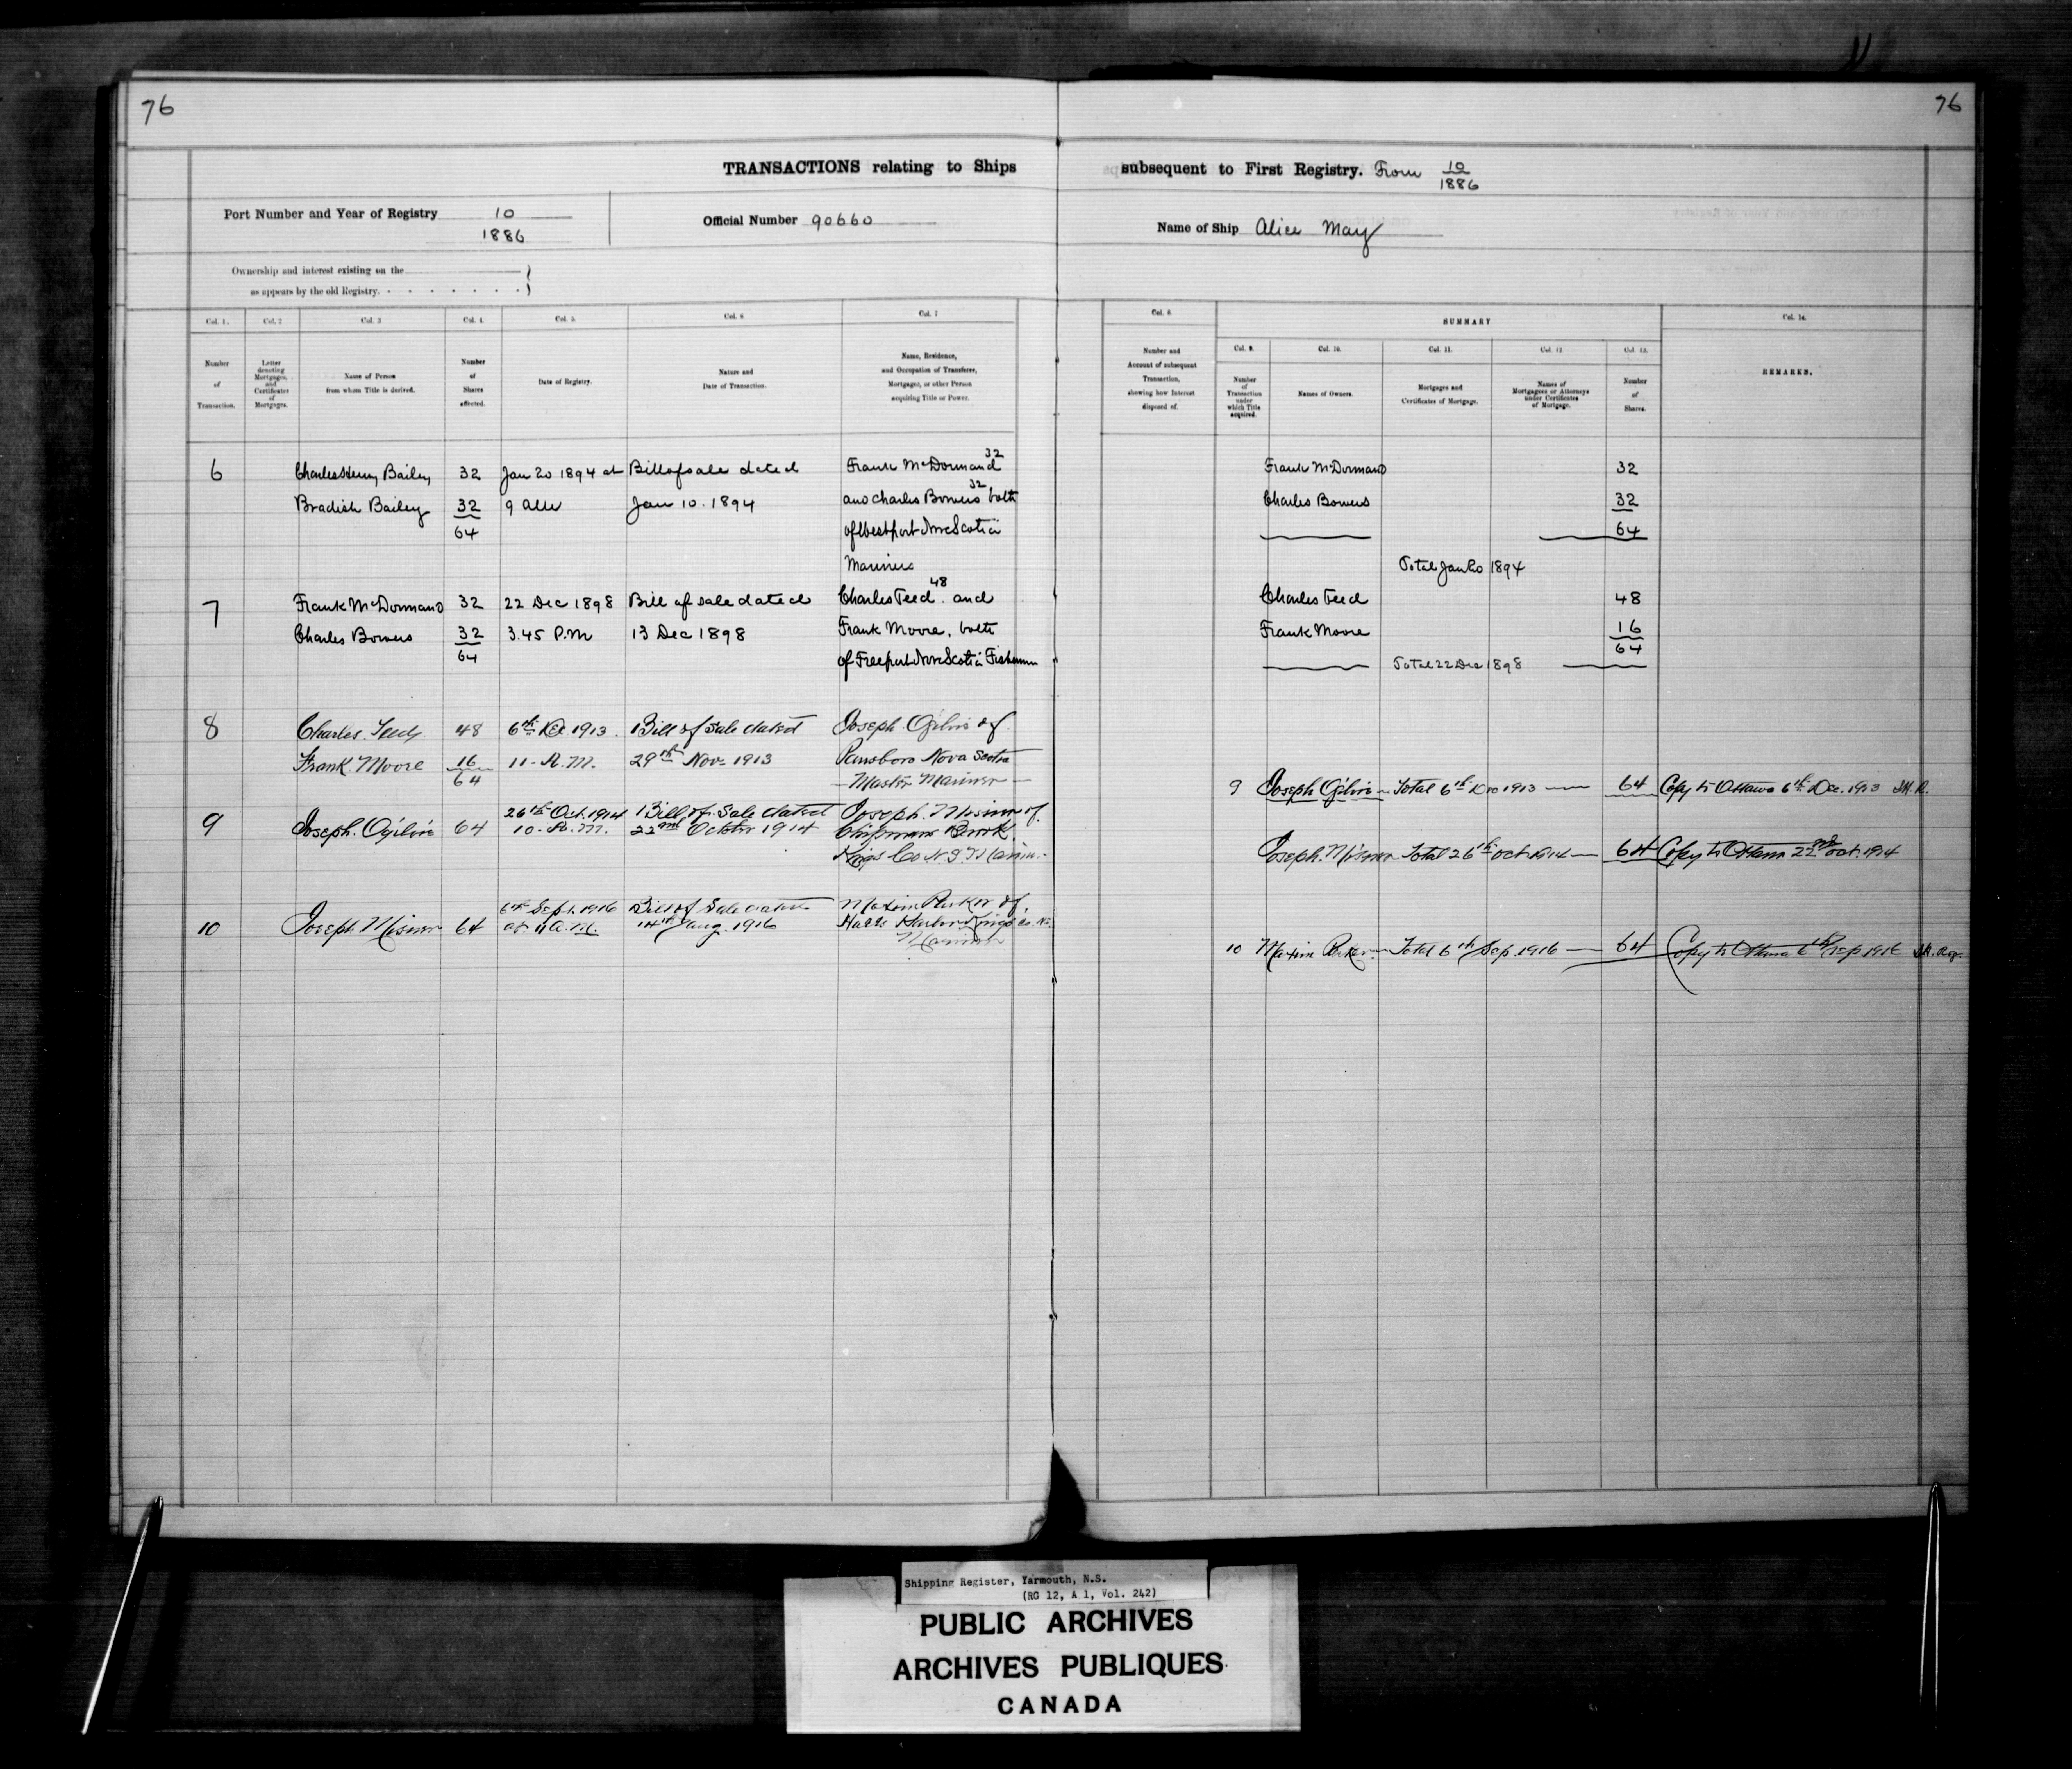 76
76
TRANSACTIONS relating to Ships subsequent to First Registry. From 10/1886
Port Number and Year of Registry 10/1886
Official Number 90660
Name of Ship Alice May
Ownership and interest existing on the
as appears by the old Registry.
Col. 1. Number of Transaction.
Col. 2 Letter denoting Mortgages, and Certificates of Mortgages.
Col. 3 Name of Person from whom Title is derived.
Col. 4. Number of Shares affected.
Col. 5. Date of Registry.
Col. 6 Nature and Date of Transaction.
Col. 7 Name, Residence, and Occupation of Transferee, Mortgagee, or other Person acquiring Title or Power.
Col. 8. Number and Account of subsequent Transaction, showing how Interest disposed of.
SUMMARY
Col. 9. Number of Transaction under which Title acquired.
Col. 10. Names of Owners.
Col. 11. Mortgages and Certificates of Mortgage.
Col. 12 Names of Mortgagees or Attorneys under Certificates of Mortgage.
Col. 13. Number of Shares.
Col. 14. REMARKS.
6 Charles Henry Bailey 32 Jan 20 1894 at Bill of sale dated Frank McDormand 32
Bradish Bailey 32 9 am Jan 10. 1894 and Charles Bowers 32 both
64 of Westport Nova Scotia
Mariners
Frank McDormand 32
Charles Bowers 32
64
Total Jan 20 1894
7 Frank McDormand 32 22 Dec 1898 Bill of sale dated Charles Teed 48 and
Charles Bowers 32 3.45 P.M 13 Dec 1898 Frank Moore, both
64 of Freeport Nova Scotia Fishermen
Charles Teed 48
Frank Moore 16
64
Total 22 Dec 1898
8 Charles Teed 48 6th Dec. 1913. Bill of Sale dated Joseph Ogilvie of
Frank Moore 16 11 - A.M. 29th Nov. 1913 Parrsboro Nova Scotia
64 - Master Mariner -
9 Joseph Ogilvie - Total 6th Dec 1913 - 64 Copy to Ottawa 6th Dec. 1913
9 Joseph. Ogilvie 64 26th Oct. 1914 Bill of Sale dated Joseph. Misner of
10 - A.M. 22nd October 1914 Chipmans Brook
Kings Co N.S. Mariner
Joseph. Misner Total 26th Oct 1914 - 64 Copy to Ottawa 22nd Oct. 1914
10 Joseph Misner 64 6th Sept. 1916 Bill of Sale dated Maxim Parker of
at 11 A.M. 14th Aug. 1916 Halls Harbor Kings Co. NS
Mariner
10 Maxim Parker - Total 6th Sep. 1916 - 64 Copy to Ottawa 6th Sep 1916
Shipping Register, Yarmouth, N.S.
(RG 12, A 1, Vol. 242)
PUBLIC ARCHIVES
ARCHIVES PUBLIQUES
CANADA